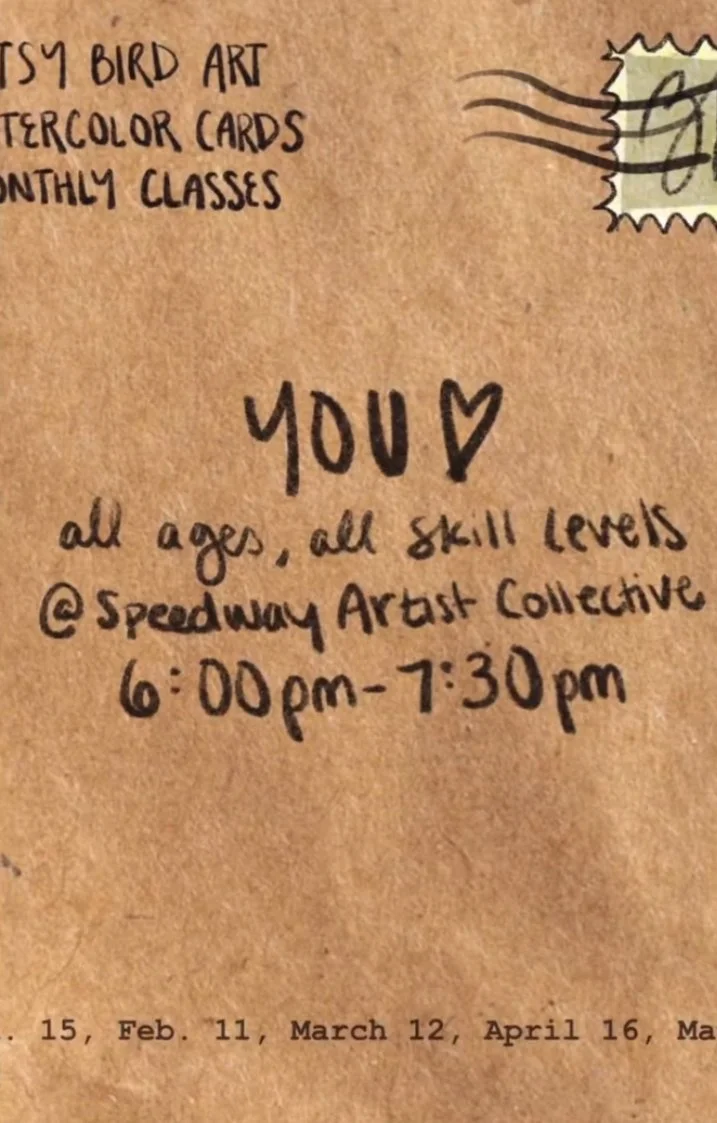 TSY BIRD ART
TERCOLOR CARDS
ONTHLY CLASSES
YOU♡
all ages, all skill levels
@ Speedway Artist Collective
6:00pm-7:30pm
. 15, Feb. 11, March 12, April 16, Ma